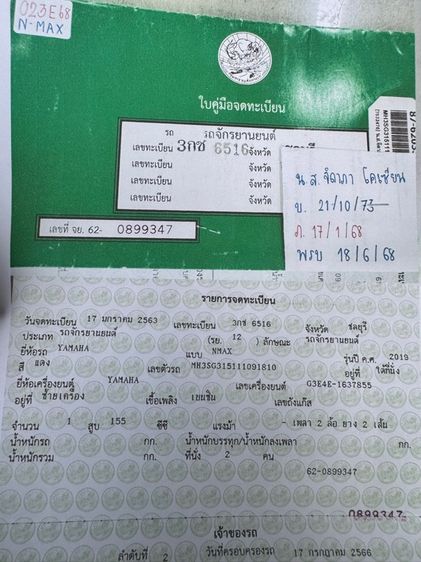 023E68
N-MAX
ใบคู่มือจดทะเบียน
รถ รถจักรยานยนต์
เลขทะเบียน 3กช 6516 จังหวัด
เลขทะเบียน จังหวัด
เลขทะเบียน จังหวัด
เลขทะเบียน จังหวัด
เลขที่ จย. 62- 0899347
น.ส. จิดาภา โคเซี่ยน
บ. 21/10/73
ภ. 17/1/68
พรบ 18/6/68
รายการจดทะเบียน
วันจดทะเบียน 17 มกราคม 2563 เลขทะเบียน 3กช 6516 จังหวัด ชลบุรี
ประเภท รถจักรยานยนต์ (รย. 12 ) ลักษณะ รถจักรยานยนต์
ยี่ห้อรถ YAMAHA แบบ NMAX รุ่นปี ค.ศ. 2019
สี แดง เลขตัวรถ MH3SG315111091810 อยู่ที่ ใต้ที่นั่ง
ยี่ห้อเครื่องยนต์ YAMAHA เลขเครื่องยนต์ G3E4E-1637855
อยู่ที่ ซ้ายเครื่อง เชื้อเพลิง เบนซิน เลขถังแก๊ส
จำนวน 1 สูบ 155 ซีซี แรงม้า - เพลา 2 ล้อ ยาง 2 เส้น
น้ำหนักรถ กก. น้ำหนักบรรทุก/น้ำหนักลงเพลา กก.
น้ำหนักรวม กก. ที่นั่ง 2 คน
62-0899347
0899347
เจ้าของรถ
ลำดับที่ 2 วันที่ครอบครองรถ 17 กรกฎาคม 2566